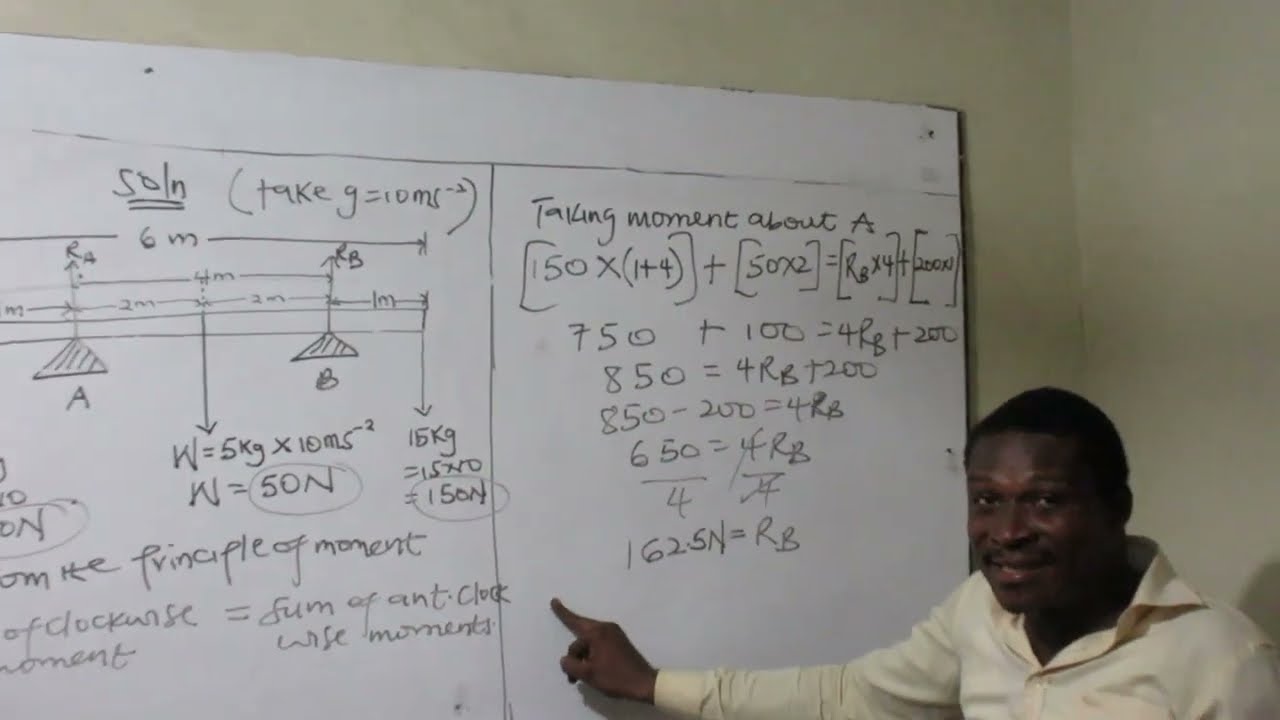 Soln (take g=10ms⁻²)
6 m
RA
RB
4m
m
2m
2m
1m
A
B
W=5kg×10ms⁻²
W=50N
15kg
=15×10
=150N
g
10
0N
om the principle of moment
of clockwise = sum of ant.clock
moment wise moments.
Taking moment about A
[150×(1+4)]+[50×2]=[RB×4]+[200×1]
750 + 100=4RB+200
850=4RB+200
850-200=4RB
650=4RB
4 4
162.5N=RB